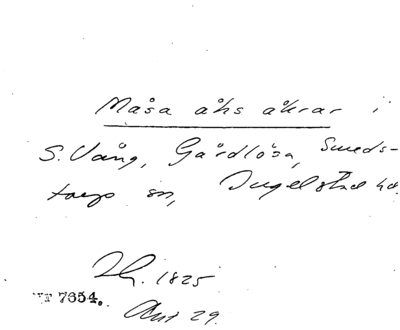 Måsa åhs åkrar i
S. Vång, Gårdlösa, Smeds-
torps sn, Ingelstad hd.
1825
7654.
Akt 29.